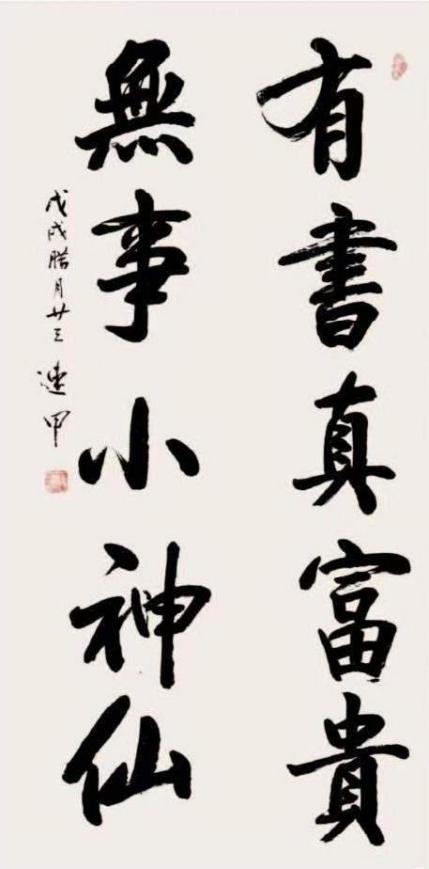 有書真富貴
無事小神仙
戊戌腊月廿三
甲